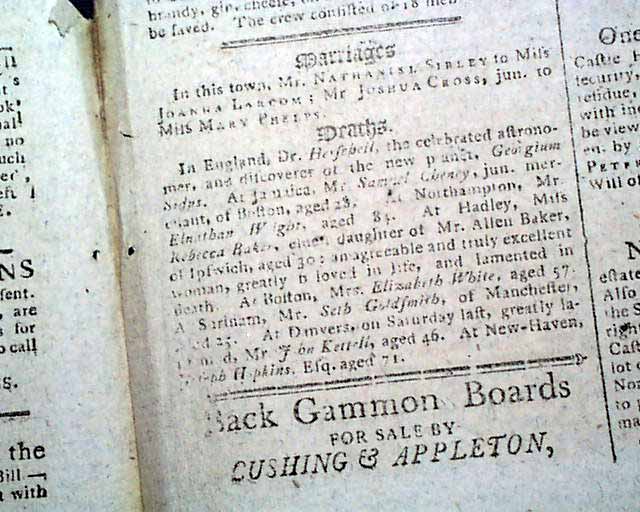 brandy, gin, cheese,
be saved. The crew consisted of 18 men
Marriages
In this town, Mr. NATHANIEL SIBLEY to Miss
JOANNA LARCOM; Mr JOSHUA CROSS, jun. to
Miss MARY PHELPS.
Deaths.
In England, Dr. Herschell, the celebrated astrono-
mer, and discoverer of the new planet, Georgium
Sidus. At Jamaica, Mr Samuel Cheney, jun. mer-
chant, of Boston, aged 28. At Northampton, Mr.
Elnathan Wight, aged 84. At Hadley, Miss
Rebecca Baker, eldest daughter of Mr. Allen Baker,
of Ipswich, aged 30: an agreeable and truly excellent
woman, greatly beloved in life, and lamented in
death. At Boston, Mrs. Elizabeth White, aged 57.
At Surinam, Mr. Seth Goldsmith, of Manchester,
aged 25. At Danvers, on Saturday last, greatly la-
mented, Mr John Kettell, aged 46. At New-Haven,
Joseph Hopkins, Esq. aged 71.
Back Gammon Boards
FOR SALE BY
CUSHING & APPLETON,
NS
sent.
, are
s for
o call
the
Bill—
n with
One
Castle H
security,
residue,
with in
be view
en. by
PETER
Will of
N
estate
Also
the S
right
Cast
lot o
Nor
to p
ma